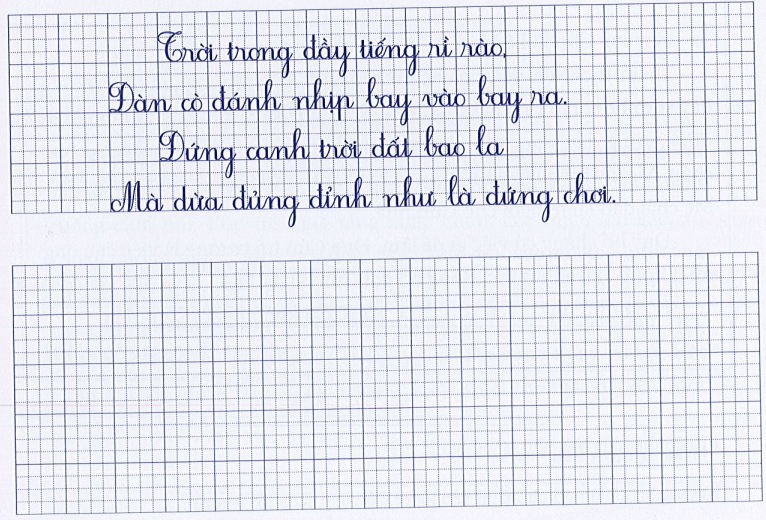 Trời trong đầy tiếng rì rào,
Đàn cò đánh nhịp bay vào bay ra.
Đứng canh trời đất bao la
Mà dừa đủng đỉnh như là đứng chơi.